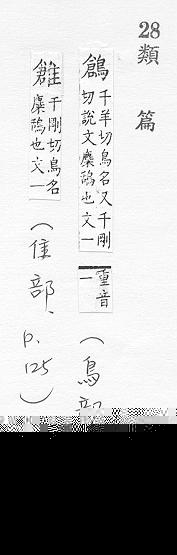 28 類篇
鶬 千羊切鳥名又千剛
切說文麋鴰也文一
重音
一
(鳥部
雦 千剛切鳥名
麋鴰也文一
(隹部、p.125)